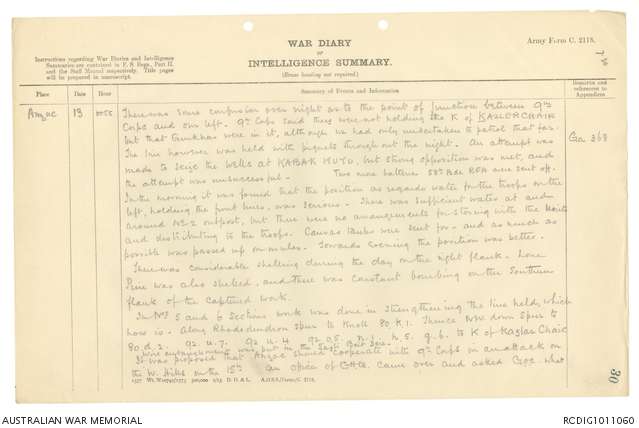 Army Form C. 2118.
WAR DIARY
or
INTELLIGENCE SUMMARY.
(Erase heading not required.)
Instructions regarding War Diaries and Intelligence
Summaries are contained in F. S. Regs., Part II.
and the Staff Manual respectively. Title pages
will be prepared in manuscript.
Place Date Hour Summary of Events and Information Remarks and references to Appendices
Anzac 13 0055 There was some confusion over night as to the point of junction between 9th
Corps and our left. 9th Corps said they were not holding the K of KAZLORCHAIR
but that Gurkhas were in it, although we had only undertaken to patrol that far.
The line however was held with piquets throughout the night. An attempt was Ga 363
made to seize the wells at KABAK KUYU, but strong opposition was met, and
the attempt was unsuccessful. Two more batteries 58th Bde RFA were sent off.
In the morning it was found that the position as regards water for the troops on the
left, holding the front lines, was serious. There was sufficient water at and
around No 2 outpost, but there were no arrangements for storing with the Units
and distributing to the troops. Canvas tanks were sent for - and as much as
possible was passed up on mules. Towards evening the position was better.
There was considerable shelling during the day on the right flank. Lone
Pine was also shelled, and there was constant bombing on the Southern
flank of the captured work.
In Nos 5 and 6 Sections work was done in strengthening the line held, which
now is. Along Rhododendron Spur to Knoll 80.K.1. Thence NW down Spur to
80.d.2. 92.u.7. 92.u.4 92.o.5. to K of Kazlar Chair
Wire entanglement was put in the
It was proposed that Anzac should cooperate with 9th Corps in an attack on
the W. Hills on the 15th. An officer of GHQ. came over and asked GOC. what
30
A.D.S.S./Forms/C. 2118.
AUSTRALIAN WAR MEMORIAL
RCDIG1011060